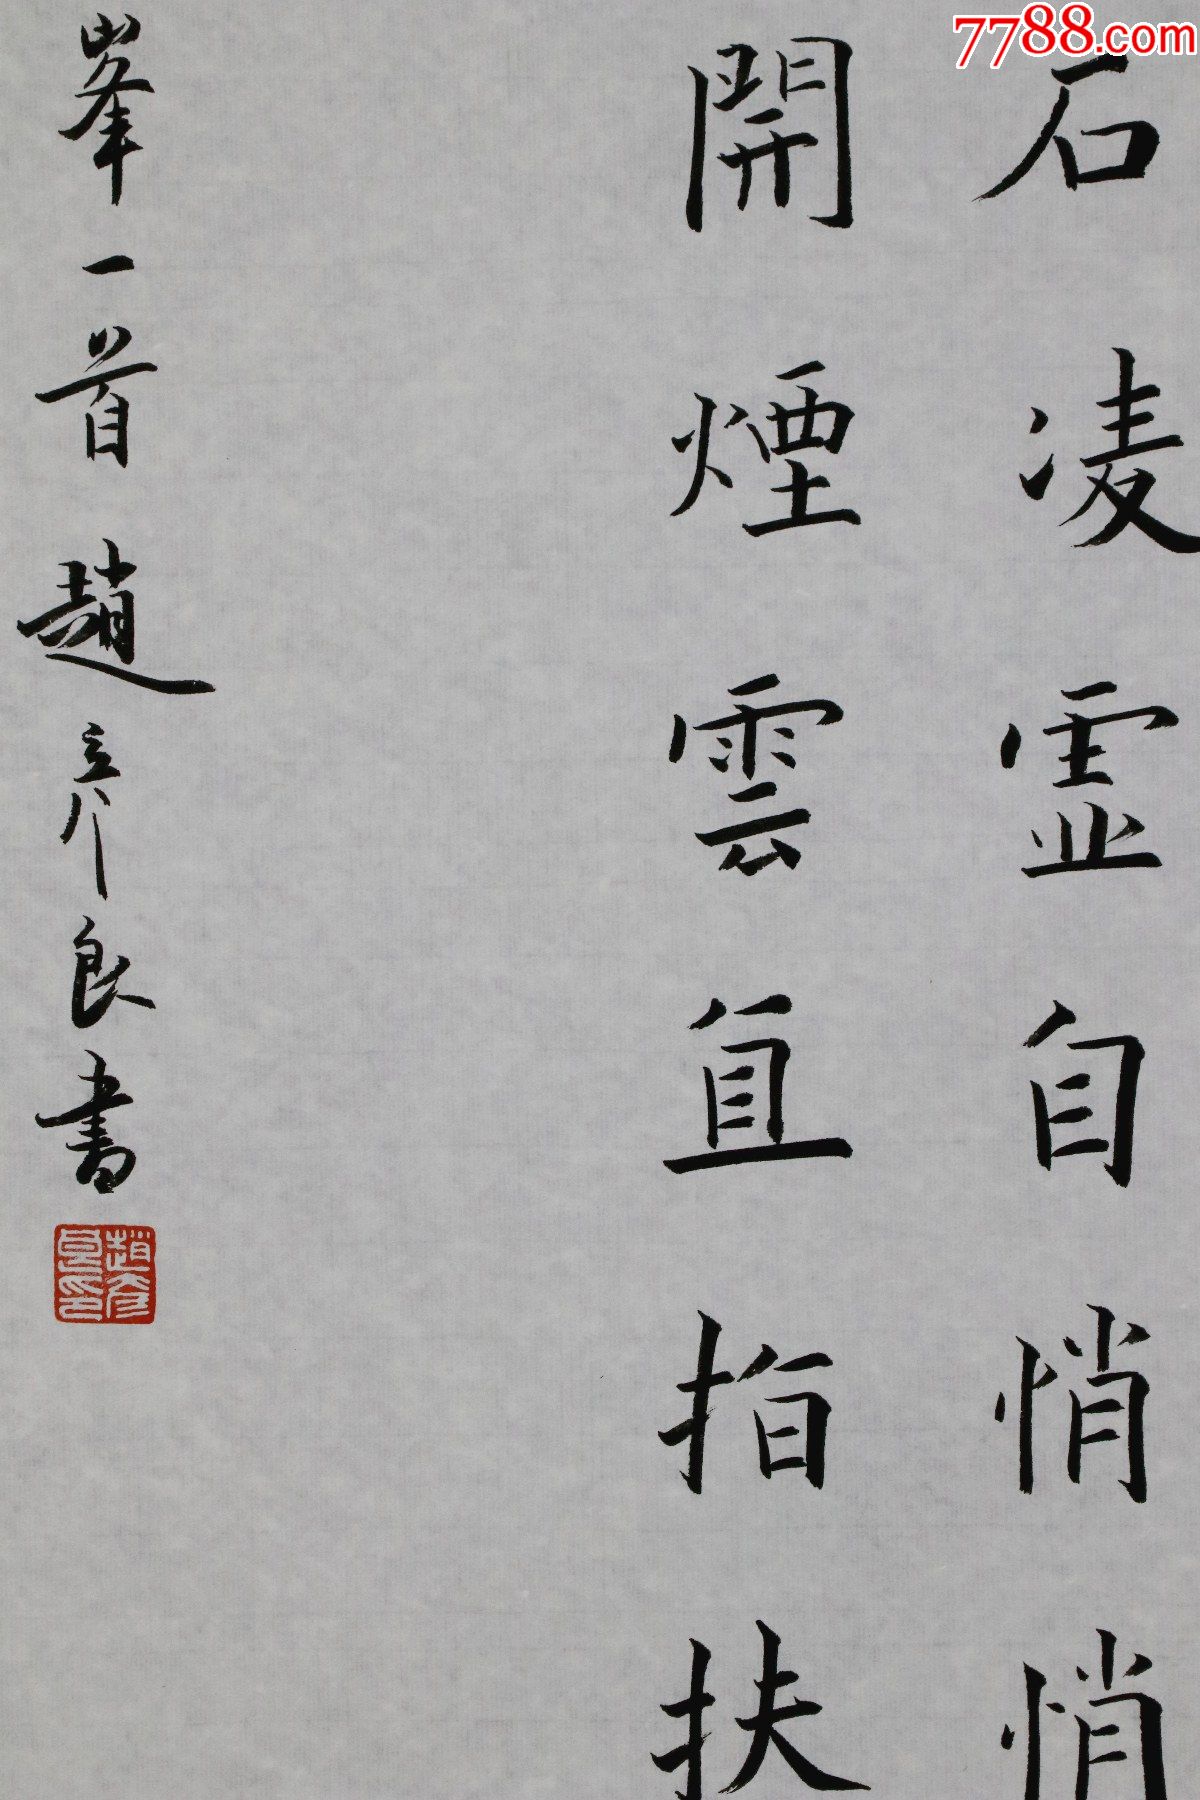 7788.com
石凌虚自悄悄
開煙雲直指扶
峯一首 趙彥良書
趙彥良印